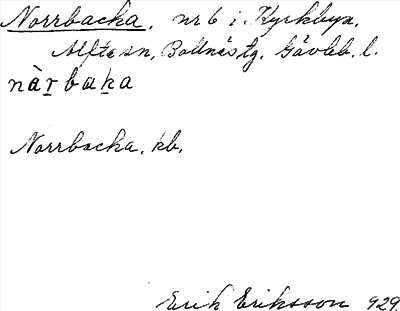 Norrbacka. nr 6 i Kyrkbyn.
Alfta sn, Bollnäs tg. Gävleb. l.
nàṟbaḵa
Norrbacka. kb.
Erik Eriksson 929.